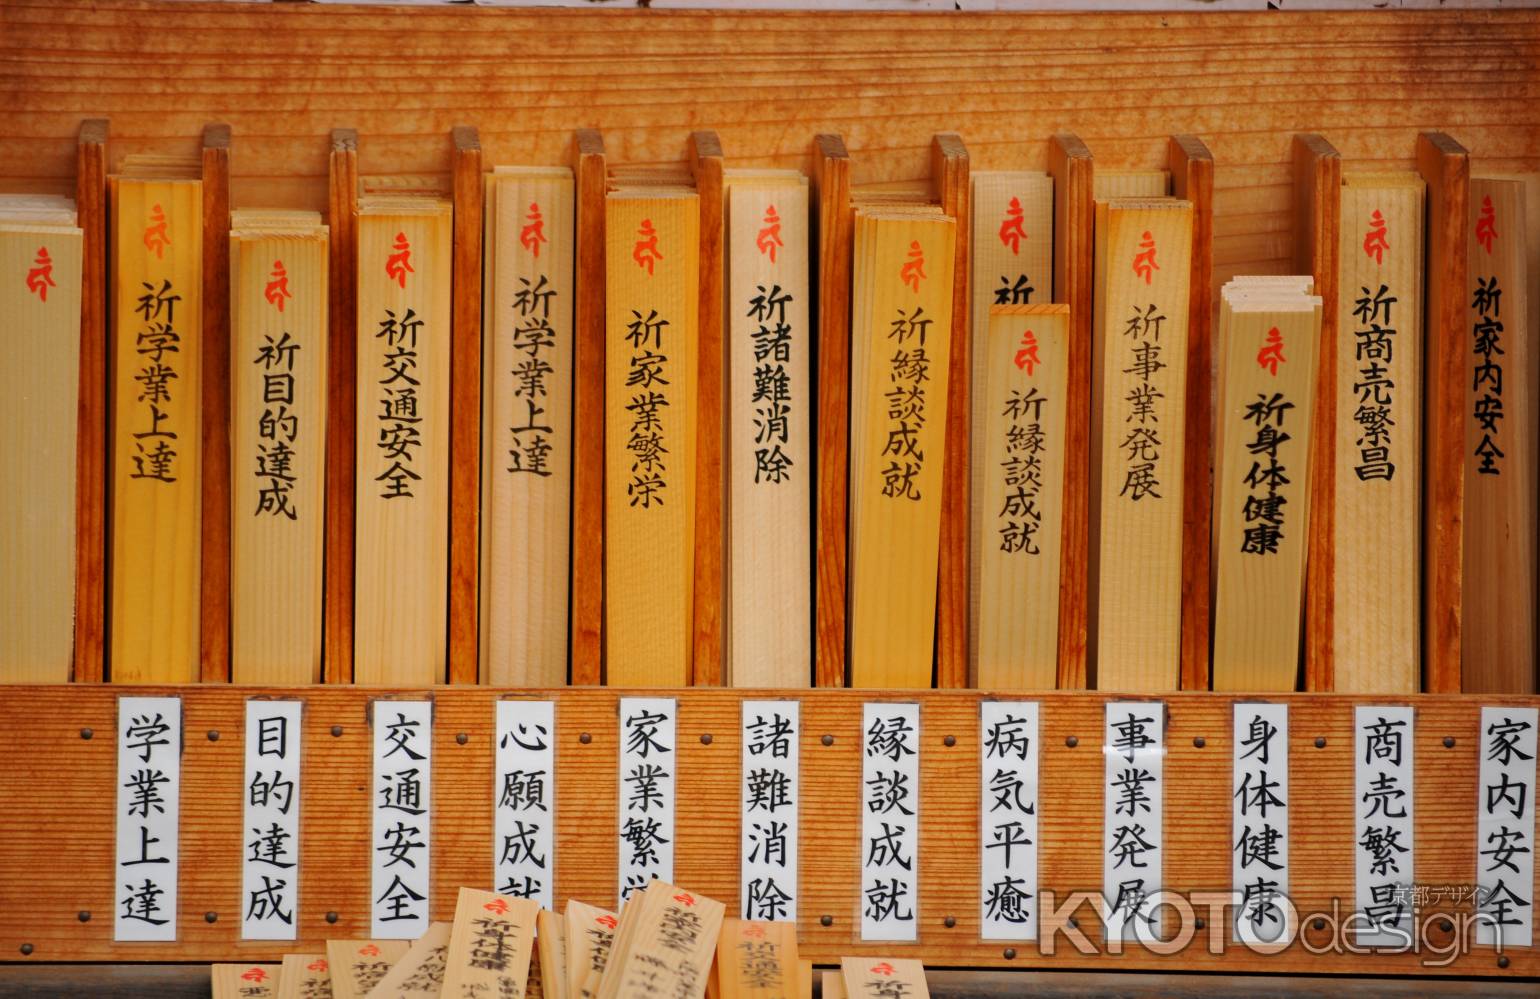 祈学業上達
祈目的達成
祈交通安全
祈学業上達
祈家業繁栄
祈諸難消除
祈縁談成就
祈
祈縁談成就
祈事業発展
祈身体健康
祈商売繁昌
祈家内安全
学業上達
目的達成
交通安全
心願成就
家業繁栄
諸難消除
縁談成就
病気平癒
事業発展
身体健康
商売繁昌
家内安全
祈身体健康
祈交通安全
祈身
京都デザイン
KYOTOdesign